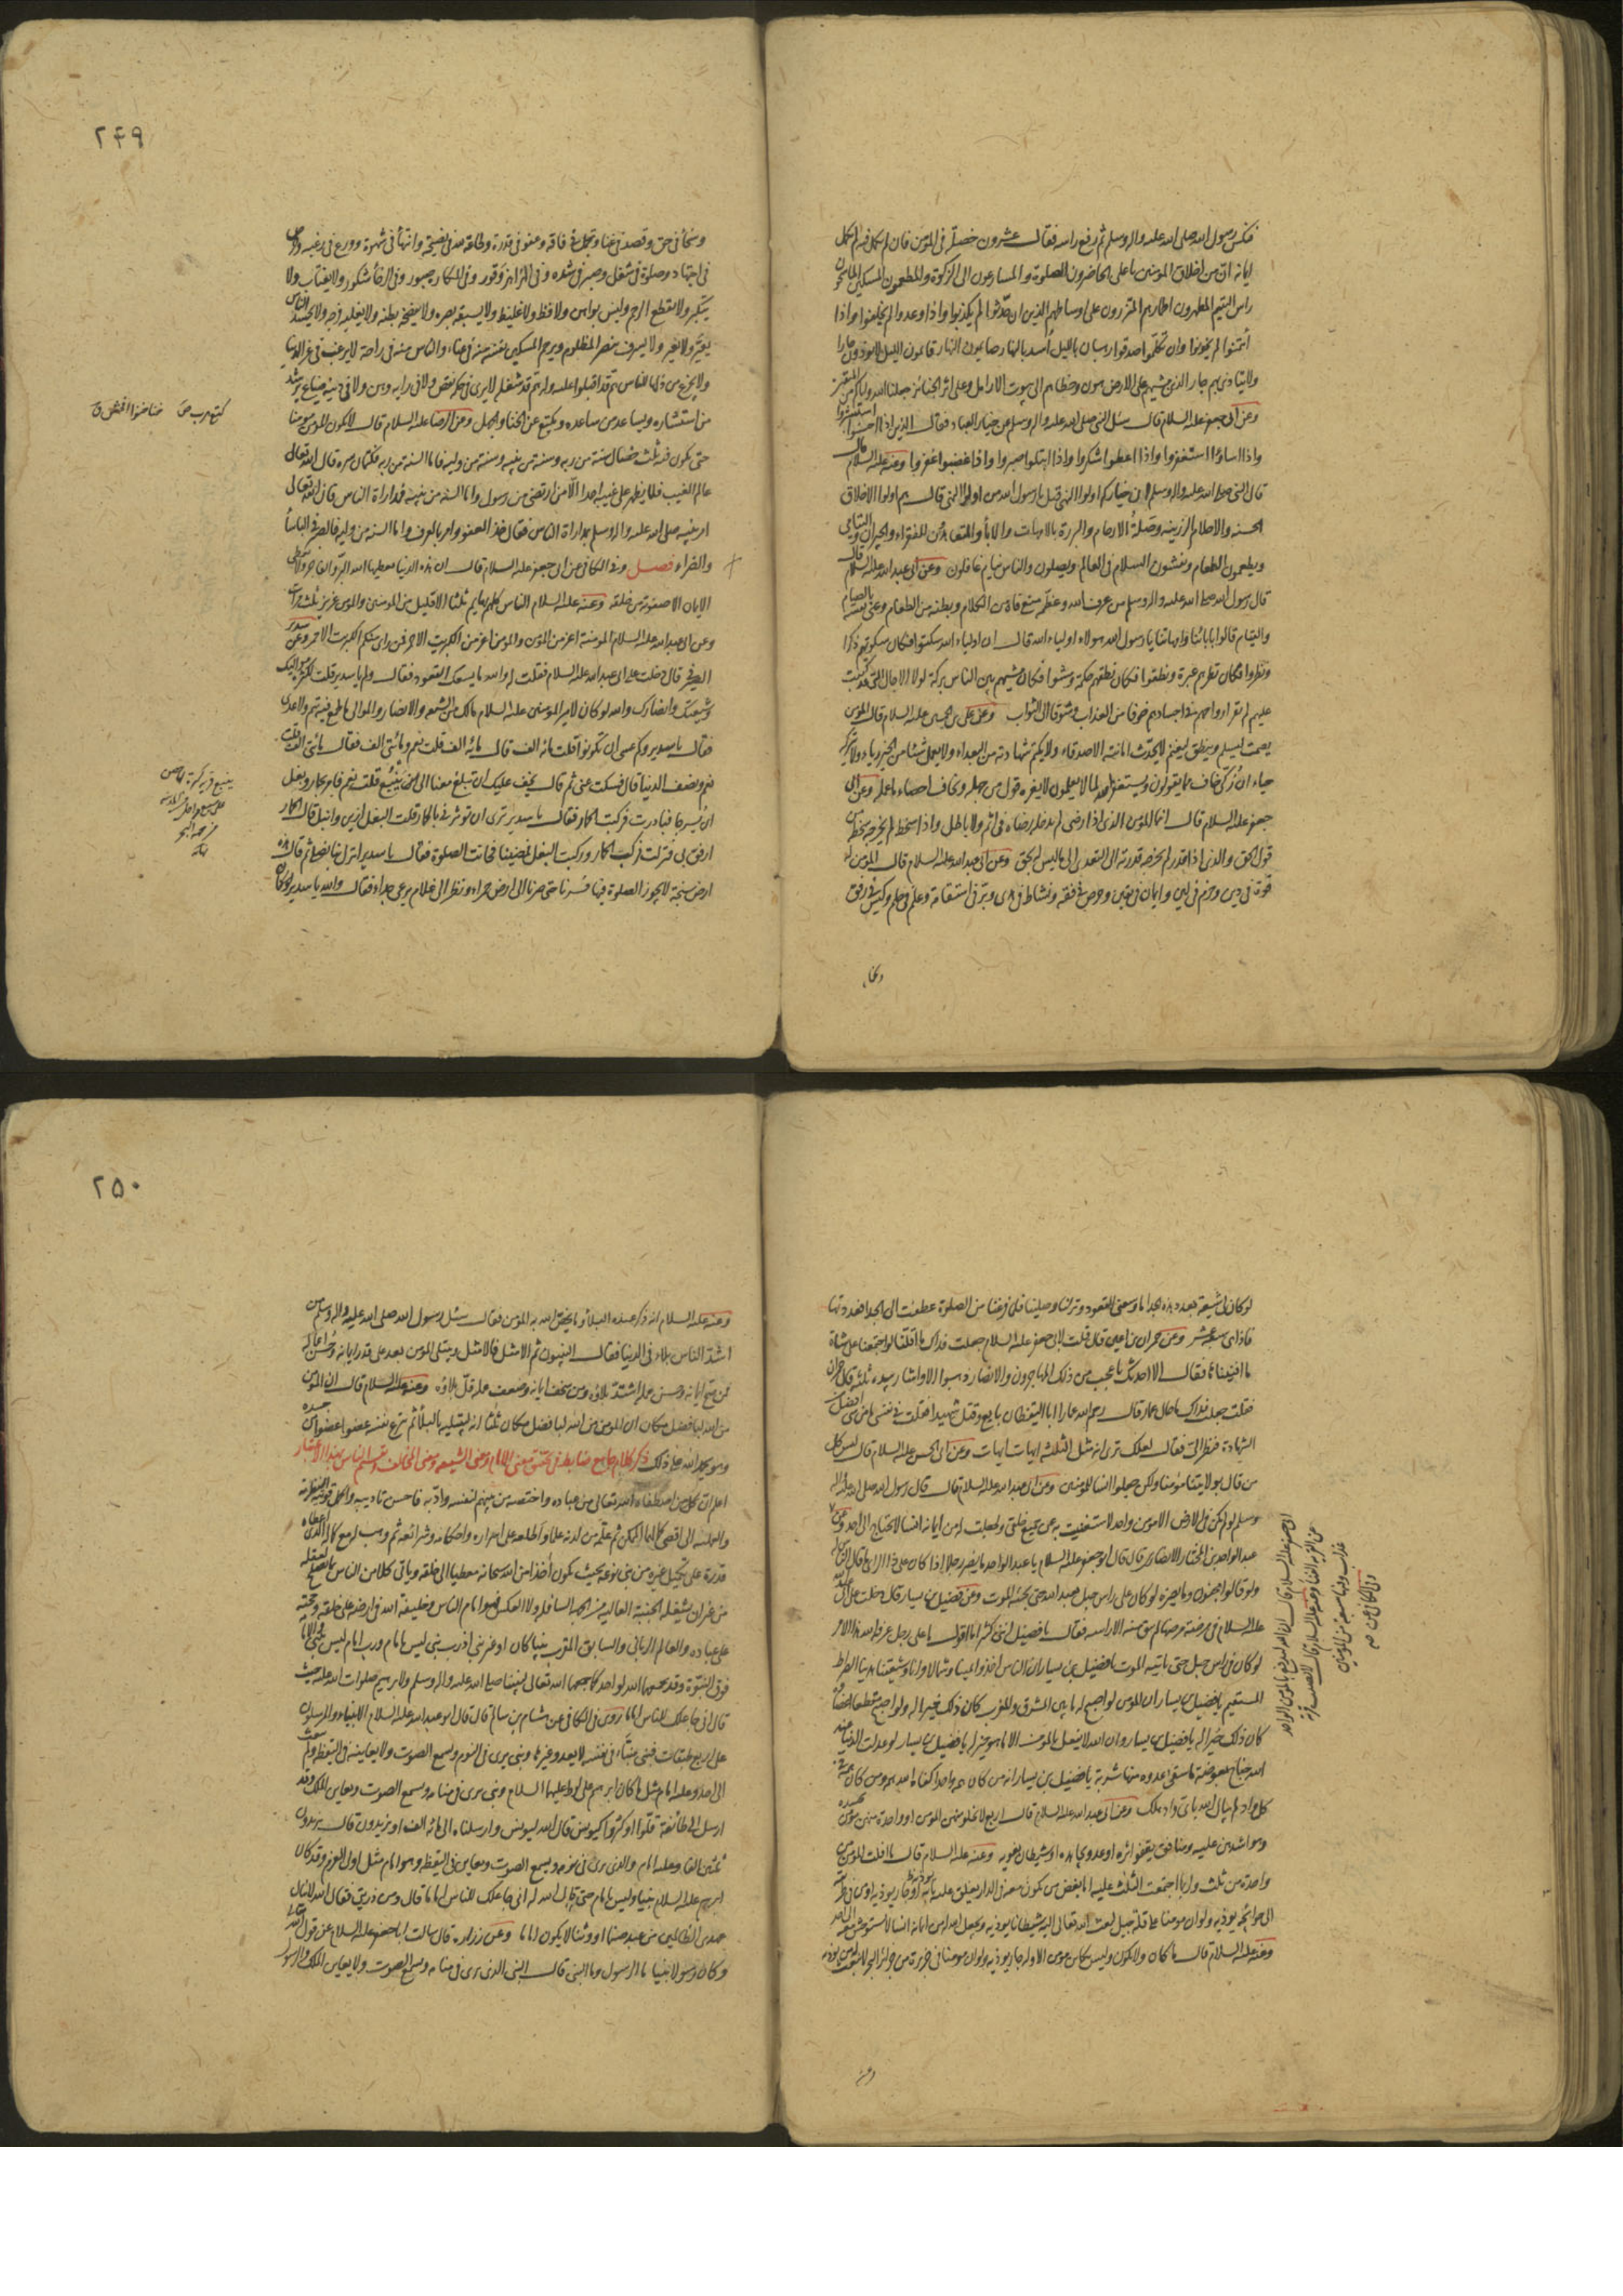 فنكس رسول الله صلى الله عليه واله وسلم ثم رفع راسه فقال عشرون خصلة فى المؤمن فان لم تكمل فيه لم يكمل
ايمانه ان من اخلاق المؤمنين يا على الحاضرون الصلوة والمسارعون الى الزكوة والمطعمون المسكين الماسحون
راس اليتيم المطهرون اطمارهم المتزرون على اوساطهم الذين ان حدثوا لم يكذبوا واذا وعدوا لم يخلفوا واذا
ائتمنوا لم يخونوا وان تكلموا صدقوا رهبان بالليل أسد بالنهار صايمون النهار قائمون الليل لا يوذون جارا
ولا يتاذى بهم جار الذين مشيهم على الارض هون وخطاهم الى بيوت الارامل وعلى اثر الجنائز جعلنا الله واياكم من المتقين
وعن ابى جعفر عليه السلام قال سئل النبى صلى الله عليه واله وسلم عن خيار العباد فقال الذين اذا احسنوا استبشروا
واذا اساؤا استغفروا واذا اعطوا شكروا واذا ابتلوا صبروا واذا غضبوا غفروا وعنه عليه السلام قال
قال النبى صلى الله عليه واله وسلم ان خياركم اولوا النهى قيل يا رسول الله من اولوا النهى قال هم اولوا الاخلاق
الحسنة والاحلام الرزينة وصلة الارحام والبررة بالامهات والآباء والمتعاهدين للفقراء والجيران واليتامى
ويطعمون الطعام ويفشون السلام فى العالم ويصلون والناس نيام غافلون وعن ابى عبد الله عليه السلام قال
قال رسول الله صلى الله عليه واله وسلم من عرف الله وعظمه منع فاه من الكلام وبطنه من الطعام وعنى نفسه بالصيام
والقيام قالوا بابائنا وامهاتنا يا رسول الله هؤلاء اولياء الله قال ان اولياء الله سكتوا فكان سكوتهم ذكرا
ونظروا فكان نظرهم عبرة ونطقوا فكان نطقهم حكمة ومشوا فكان مشيهم بين الناس بركة لولا الاجال التى قد كتبت
عليهم لم تقر ارواحهم فى اجسادهم خوفا من العذاب وشوقا الى الثواب وعن على بن الحسين عليه السلام قال المؤمن
يصمت ليسلم وينطق ليغنم لا يحدث امانته الاصدقاء ولا يكتم شهادته من البعداء ولا يعمل شيئا من الخير رياء ولا يتركه
حياء ان زكى خاف مما يقولون ويستغفر الله لما لا يعلمون لا يغره قول من جهله ويخاف احصاء ما عمله وعن ابى
جعفر عليه السلام قال انما المؤمن الذى اذا رضى لم يدخله رضاه فى اثم ولا باطل واذا سخط لم يخرجه سخطه من
قول الحق والذى اذا قدر لم تخرجه قدرته الى التعدى الى ما ليس له بحق وعن ابى عبد الله عليه السلام قال المؤمن له
قوة فى دين وحزم فى لين وايمان فى يقين وحرص فى فقه ونشاط فى هدى وبر فى استقامة وعلم فى حلم وكيس فى رفق
وسخا
٢٤٩
وسخاء فى حق وقصد فى غنا وتجمل فى فاقة وعفو فى قدرة وطاعة لله فى نصيحة وانتهاء فى شهوة وورع فى رغبة وحرص
فى اجتهاد وصلوة فى شغل وصبر فى شدة وفى الهزاهز وقور وفى المكاره صبور وفى الرخاء شكور ولا يغتاب ولا
يتكبر ولا يقطع الرحم وليس بواهن ولا فظ ولا غليظ ولا يسبقه بصره ولا يفضحه بطنه ولا يغلبه فرجه ولا يحسد الناس
يعير ولا يعير ولا يسرف ينصر المظلوم ويرحم المسكين نفسه منه فى عناء والناس منه فى راحة لا يرغب فى عز الدنيا
ولا يجزع من ذلها للناس هم قد اقبلوا عليه وله هم قد شغله لا يرى فى حكمه نقص ولا فى رايه وهن ولا فى دينه ضياع يرشد
من استشاره ويساعد من ساعده ويكيع عن الخنا والجهل وعن الرضا عليه السلام قال لا يكون المؤمن مؤمنا
حتى يكون فيه ثلث خصال سنة من ربه وسنة من نبيه وسنة من وليه فاما السنة من ربه فكتمان سره قال الله تعالى
عالم الغيب فلا يظهر على غيبه احدا الا من ارتضى من رسول واما السنة من نبيه فمداراة الناس فان الله تعالى
امر نبيه صلى الله عليه واله وسلم بمداراة الناس فقال خذ العفو وامر بالعرف واما السنة من وليه فالصبر فى البأساء
والضراء فصل وفى الكافى عن ابى جعفر عليه السلام قال ان هذه الدنيا يعطيها الله البر والفاجر ولا يعطى
الايمان الا صفوته من خلقه وعنه عليه السلام الناس كلهم بهايم ثلثا الا قليل من المؤمنين والمؤمن عزيز ثلث مرات
وعن ابى عبد الله عليه السلام المؤمنة اعز من المؤمن والمؤمن اعز من الكبريت الاحمر فمن راى منكم الكبريت الاحمر وعن سدير
الصيرفى قال دخلت على ابى عبد الله عليه السلام فقلت له والله ما يسعك القعود فقال ولم يا سدير قلت لكثرة مواليك
وشيعتك وانصارك والله لو كان لامير المؤمنين عليه السلام مالك من الشيعة والانصار والموالى ما طمع فيه تيم ولا عدى
فقال يا سدير وكم عسى ان تكونوا قلت مائة الف قال مائة الف قلت نعم ومأتى الف فقال مأتى الف قلت
نعم ونصف الدنيا قال فسكت عنى ثم قال يخف عليك ان تبلغ معنا الى ينبع قلت نعم فامر بحمار وبغل
ان يسرجا فبادرت فركبت الحمار فقال يا سدير ترى ان تؤثرنى بالحمار قلت البغل ازين وانبل قال الحمار
ارفق بى فنزلت فركب الحمار وركبت البغل فمضينا فحانت الصلوة فقال يا سدير انزل بنا نصلى ثم قال هذه
ارض سبخة لا يجوز الصلوة فيها فسرنا حتى صرنا الى ارض حمراء ونظر الى غلام يرعى جداء فقال والله يا سدير لو كان
لو كان لى شيعة بعدد هذه الجداء ما وسعنى القعود ونزلنا وصلينا فلما فرغنا من الصلوة عطفت الى الجداء فعددتها
فاذا هى سبعة عشر وعن حمران بن اعين قال قلت لابى جعفر عليه السلام جعلت فداك ما اقلنا لو اجتمعنا على شاة
ما افنيناها فقال الا احدثك باعجب من ذلك المهاجرون والانصار ذهبوا الا واشار بيده ثلثة قال حمران
فقلت جعلت فداك ما حال عمار قال رحم الله عمارا ابا اليقظان بايع وقتل شهيدا فقلت فى نفسى ما شئ افضل من
الشهادة فنظر الى فقال لعلك ترى انه مثل الثلثة ايهات ايهات وعن ابى الحسن عليه السلام قال ليس كل
من قال بولايتنا مؤمنا ولكن جعلوا انسا للمؤمنين وعن ابى عبد الله عليه السلام قال قال رسول الله صلى الله عليه واله
وسلم لو لم يكن فى الارض الا مؤمن واحد لاستغنيت به عن جميع خلقى ولجعلت له من ايمانه انسا لا يحتاج الى احد وعن
عبد الواحد بن المختار الانصارى قال قال ابو جعفر عليه السلام يا عبد الواحد ما يضر رجلا اذا كان على ذا الراى ما قال الناس له
ولو قالوا مجنون وما يضره لو كان على راس جبل يعبد الله حتى يجيئه الموت وعن فضيل بن يسار قال دخلت على ابى عبد الله
عليه السلام فى مرضة مرضها لم يبق منه الا راسه فقال يا فضيل اننى كثيرا ما اقول ما على رجل عرفه الله هذا الامر
لو كان فى راس جبل حتى ياتيه الموت يا فضيل بن يسار ان الناس اخذوا يمينا وشمالا وانا وشيعتنا هدينا الصراط
المستقيم يا فضيل بن يسار ان المؤمن لو اصبح له ما بين المشرق والمغرب كان ذلك خيرا له ولو اصبح مقطعا اعضاؤه
كان ذلك خيرا له يا فضيل بن يسار ان الله لا يفعل بالمؤمن الا ما هو خير له يا فضيل بن يسار لو عدلت الدنيا عند
الله جناح بعوضة ما سقى عدوه منها شربة يا فضيل بن يسار انه من كان همه واحدا كفاه الله همه ومن كان همه فى
كل واد لم يبال الله باى واد هلك وعن ابى عبد الله عليه السلام قال اربع لا يخلو منهن المؤمن او واحدة منهن مؤمن يحسده
وهو اشدهن عليه ومنافق يقفو اثره او عدو يجاهده او شيطان يغويه وعنه عليه السلام قال ما افلت المؤمن من
واحدة من ثلث ولربما اجتمعت الثلث عليه اما بغض من يكون معه فى الدار يغلق عليه بابه يؤذيه او جار يوذيه او من فى طريقه
الى حوائجه يوذيه ولو ان مؤمنا على قلة جبل لبعث الله تعالى اليه شيطانا يوذيه ويجعل الله له من ايمانه انسا لا يستوحش معه الى احد
وعنه عليه السلام قال ما كان ولا يكون وليس بكائن مؤمن الا وله جار يوذيه ولو ان مؤمنا فى جزيرة من جزائر البحر لانبعث له من يوذيه
وعنه
٢٥٠
وعنه عليه السلام انه ذكر عنده البلاء وما يخص الله به المؤمن فقال سئل رسول الله صلى الله عليه واله وسلم من
اشد الناس بلاء فى الدنيا فقال النبيون ثم الامثل فالامثل ويبتلى المؤمن بعد على قدر ايمانه وحسن اعماله
فمن صح ايمانه وحسن عمله اشتد بلاؤه ومن سخف ايمانه وضعف عمله قل بلاؤه وعنه عليه السلام قال ان المؤمن
من الله لبافضل مكان ان المؤمن من الله لبافضل مكان ثلثا انه ليبتليه بالبلاء ثم ينزع نفسه عضوا عضوا من جسده
وهو يحمد الله على ذلك ذكر كلام جامع ضابط فى تحقيق معنى الامام ومعنى الشيعة ومعنى المخالف وتقسيم الناس بهذا الاعتبار
اعلم ان كل من اصطفاه الله تعالى من عباده واختصه من بينهم لنفسه وادبه فاحسن تاديبه واكمل قوتيه النظرية
والعملية الى اقصى كمالها الممكن ثم علمه من لدنه علما واطلعه على اسراره واحكامه وشرائعه ثم وهب له مع كماله الذى اعطاه
قدرة على تكميل غيره من بنى نوعه بحيث يكون أخذا من الله سبحانه معطيا الى خلقه وياتى كلا من الناس ما يصلح لعقله
من غير ان يشغله الجنبة العالية عن الجهة السافلة ولا العكس فهو امام الناس وخليفة الله فى ارضه على خلقه وحجته
على عباده والعالم الربانى والسابق المقرب نبيا كان او غير نبى اذ رب نبى ليس بامام ورب امام ليس بنبى والامامة
فوق النبوة وقد يجمعهما الله لواحد كما جمعهما الله تعالى لنبينا صلى الله عليه واله وسلم ولابراهيم صلوات الله عليه حيث
قال انى جاعلك للناس اماما روى فى الكافى عن هشام بن سالم قال قال ابو عبد الله عليه السلام الانبياء والمرسلون
على اربع طبقات فنبى منبأ فى نفسه لا يعدو غيرها ونبى يرى فى النوم ويسمع الصوت ولا يعاينه فى اليقظة ولم يبعث
الى احد وعليه امام مثل ما كان ابرهيم على لوط عليهما السلام ونبى يرى فى منامه ويسمع الصوت ويعاين الملك وقد
ارسل الى طائفة قلوا او كثروا كيونس قال الله ليونس وارسلناه الى مائة الف او يزيدون قال يزيدون
ثلثين الفا وعليه امام والذى يرى فى نومه ويسمع الصوت ويعاين فى اليقظة وهو امام مثل اولى العزم وقد كان
ابرهيم عليه السلام نبيا وليس بامام حتى قال الله له انى جاعلك للناس اماما قال ومن ذريتى فقال الله لا ينال
عهدى الظالمين من عبد صنما او وثنا لا يكون اماما وعن زرارة قال سالت ابا جعفر عليه السلام عن قول الله تعالى
وكان رسولا نبيا ما الرسول وما النبى قال النبى الذى يرى فى منامه ويسمع الصوت ولا يعاين الملك والرسول